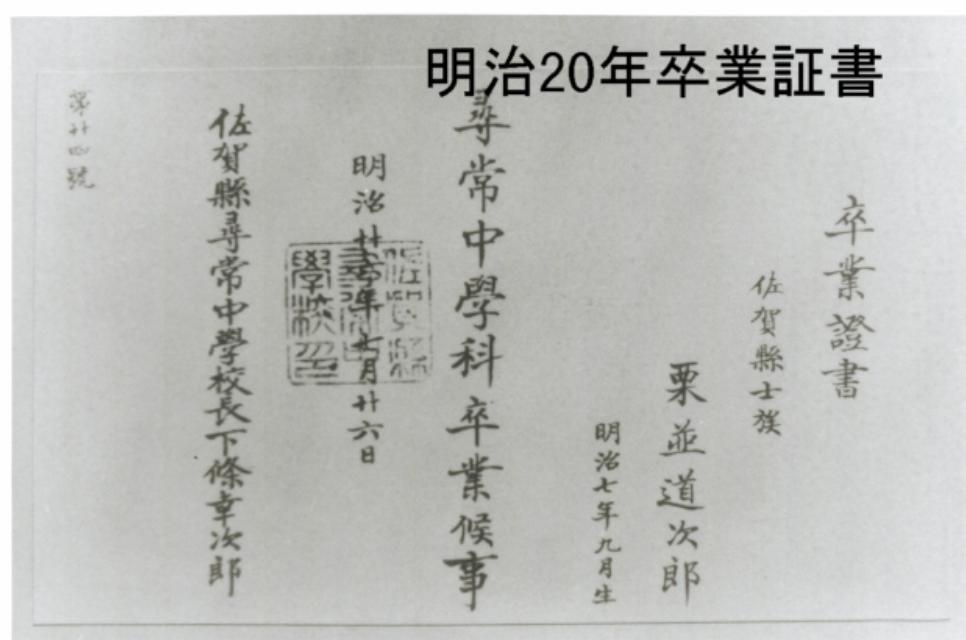 明治20年卒業証書
卒業證書
佐賀縣士族
栗並道次郎
明治七年九月生
尋常中學科卒業候事
明治廿年七月廿六日
佐賀縣尋常中學校長下條幸次郎
第廿四號
學校印